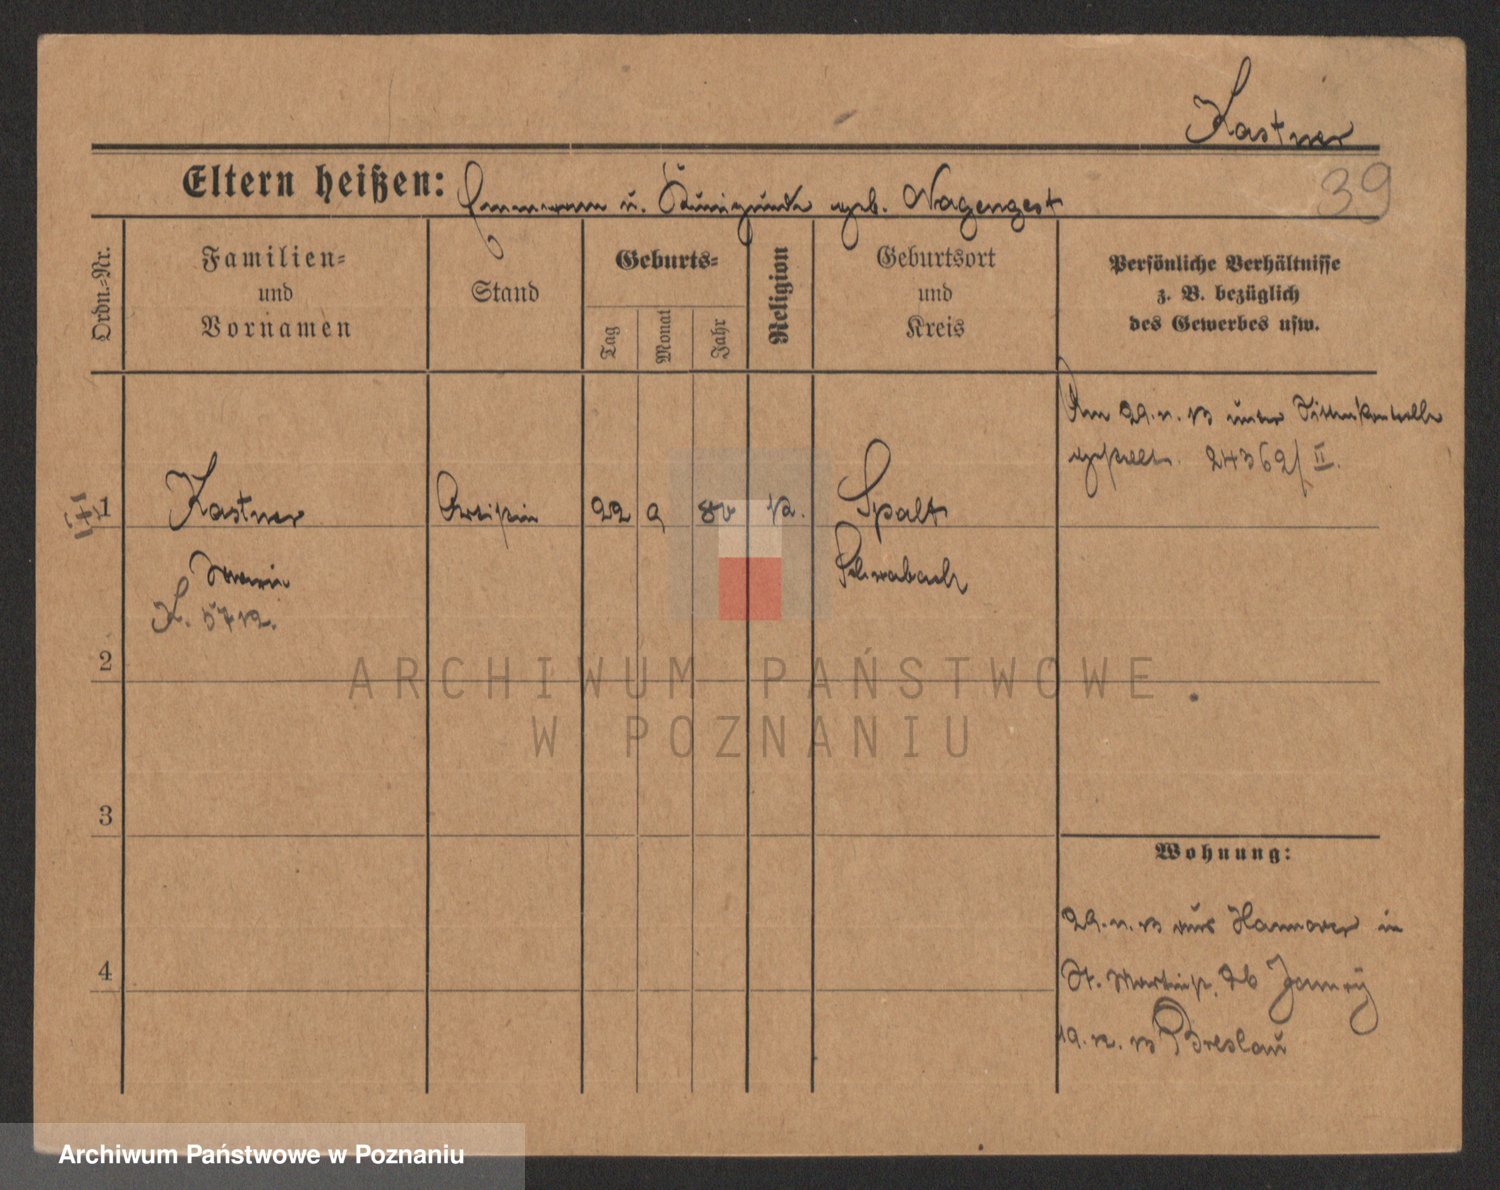 Kastner
39
Eltern heißen: Emmeram u. Kunigunde geb. Nagengast
Ordn.-Nr.
Familien-
und
Vornamen
Stand
Geburts-
Tag
Monat
Jahr
Religion
Geburtsort
und
Kreis
Persönliche Verhältnisse
z. B. bezüglich
des Gewerbes usw.
Am 29. 11. 13 unter Sittenkontrolle
gestellt. 24362/II.
1
Kastner
Artistin
22
9
Spalt
Maria
Schwabach
K. 5712.
2
3
4
Wohnung:
29. 11. 13 aus Hannover in
St. Martinstr. 26
19. 12. 13 Breslau
ARCHIWUM PAŃSTWOWE
W POZNANIU
Archiwum Państwowe w Poznaniu